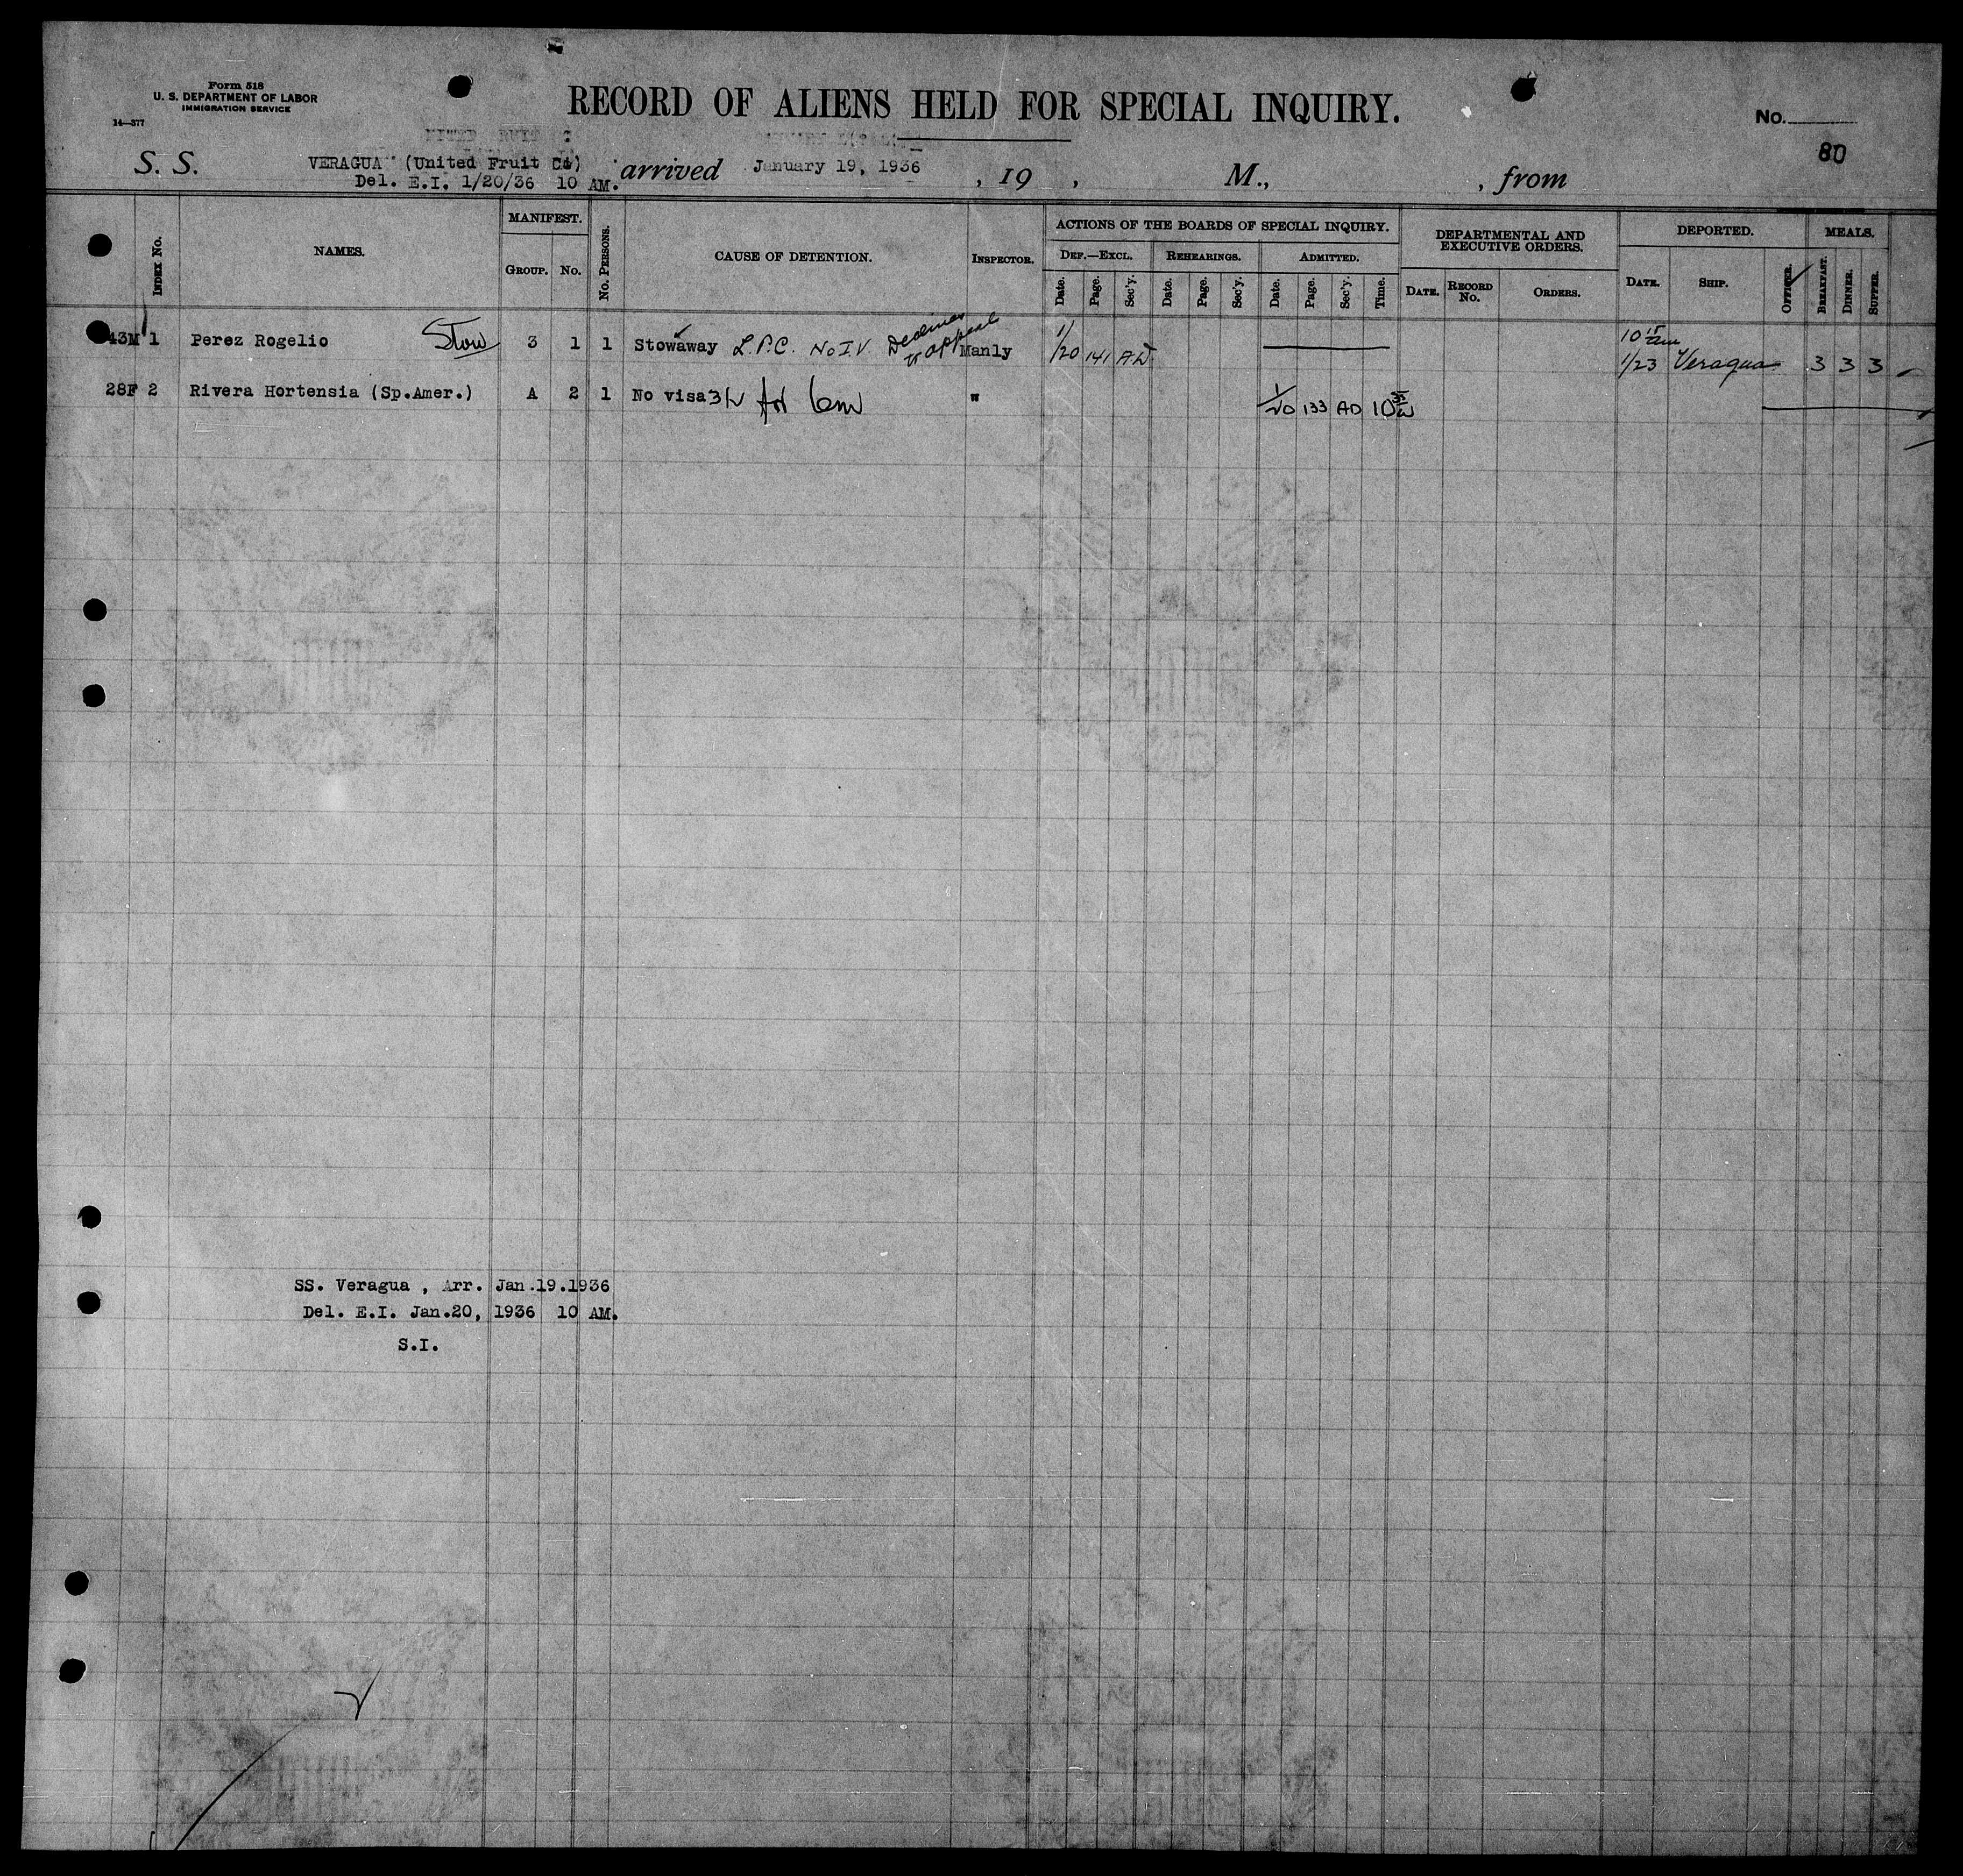 Form 518
U. S. DEPARTMENT OF LABOR
IMMIGRATION SERVICE
14—377
RECORD OF ALIENS HELD FOR SPECIAL INQUIRY.
No.
80
S. S. VERAGUA (United Fruit Co) arrived January 19, 1936, 19 , M., , from
Del. E.I. 1/20/36 10 AM.
INDEX No. NAMES. MANIFEST. GROUP. No. No. PERSONS. CAUSE OF DETENTION. INSPECTOR. ACTIONS OF THE BOARDS OF SPECIAL INQUIRY. DEF.—EXCL. Date. Page. Sec'y. REHEARINGS. Date. Page. Sec'y. ADMITTED. Date. Page. Sec'y. Time. DEPARTMENTAL AND EXECUTIVE ORDERS. DATE. RECORD No. ORDERS. DEPORTED. DATE. SHIP. OFFICER. MEALS. BREAKFAST. DINNER. SUPPER.
43M 1 Perez Rogelio Stow 3 1 1 Stowaway L.P.C. No I.V. appeal Manly 1/20 141 10 15 am 1/23 Veragua 3 3 3
28F 2 Rivera Hortensia (Sp.Amer.) A 2 1 No visa 6m " 1/20 133 AO 10
SS. Veragua , Arr. Jan.19.1936
Del. E.I. Jan.20, 1936 10 AM.
S.I.